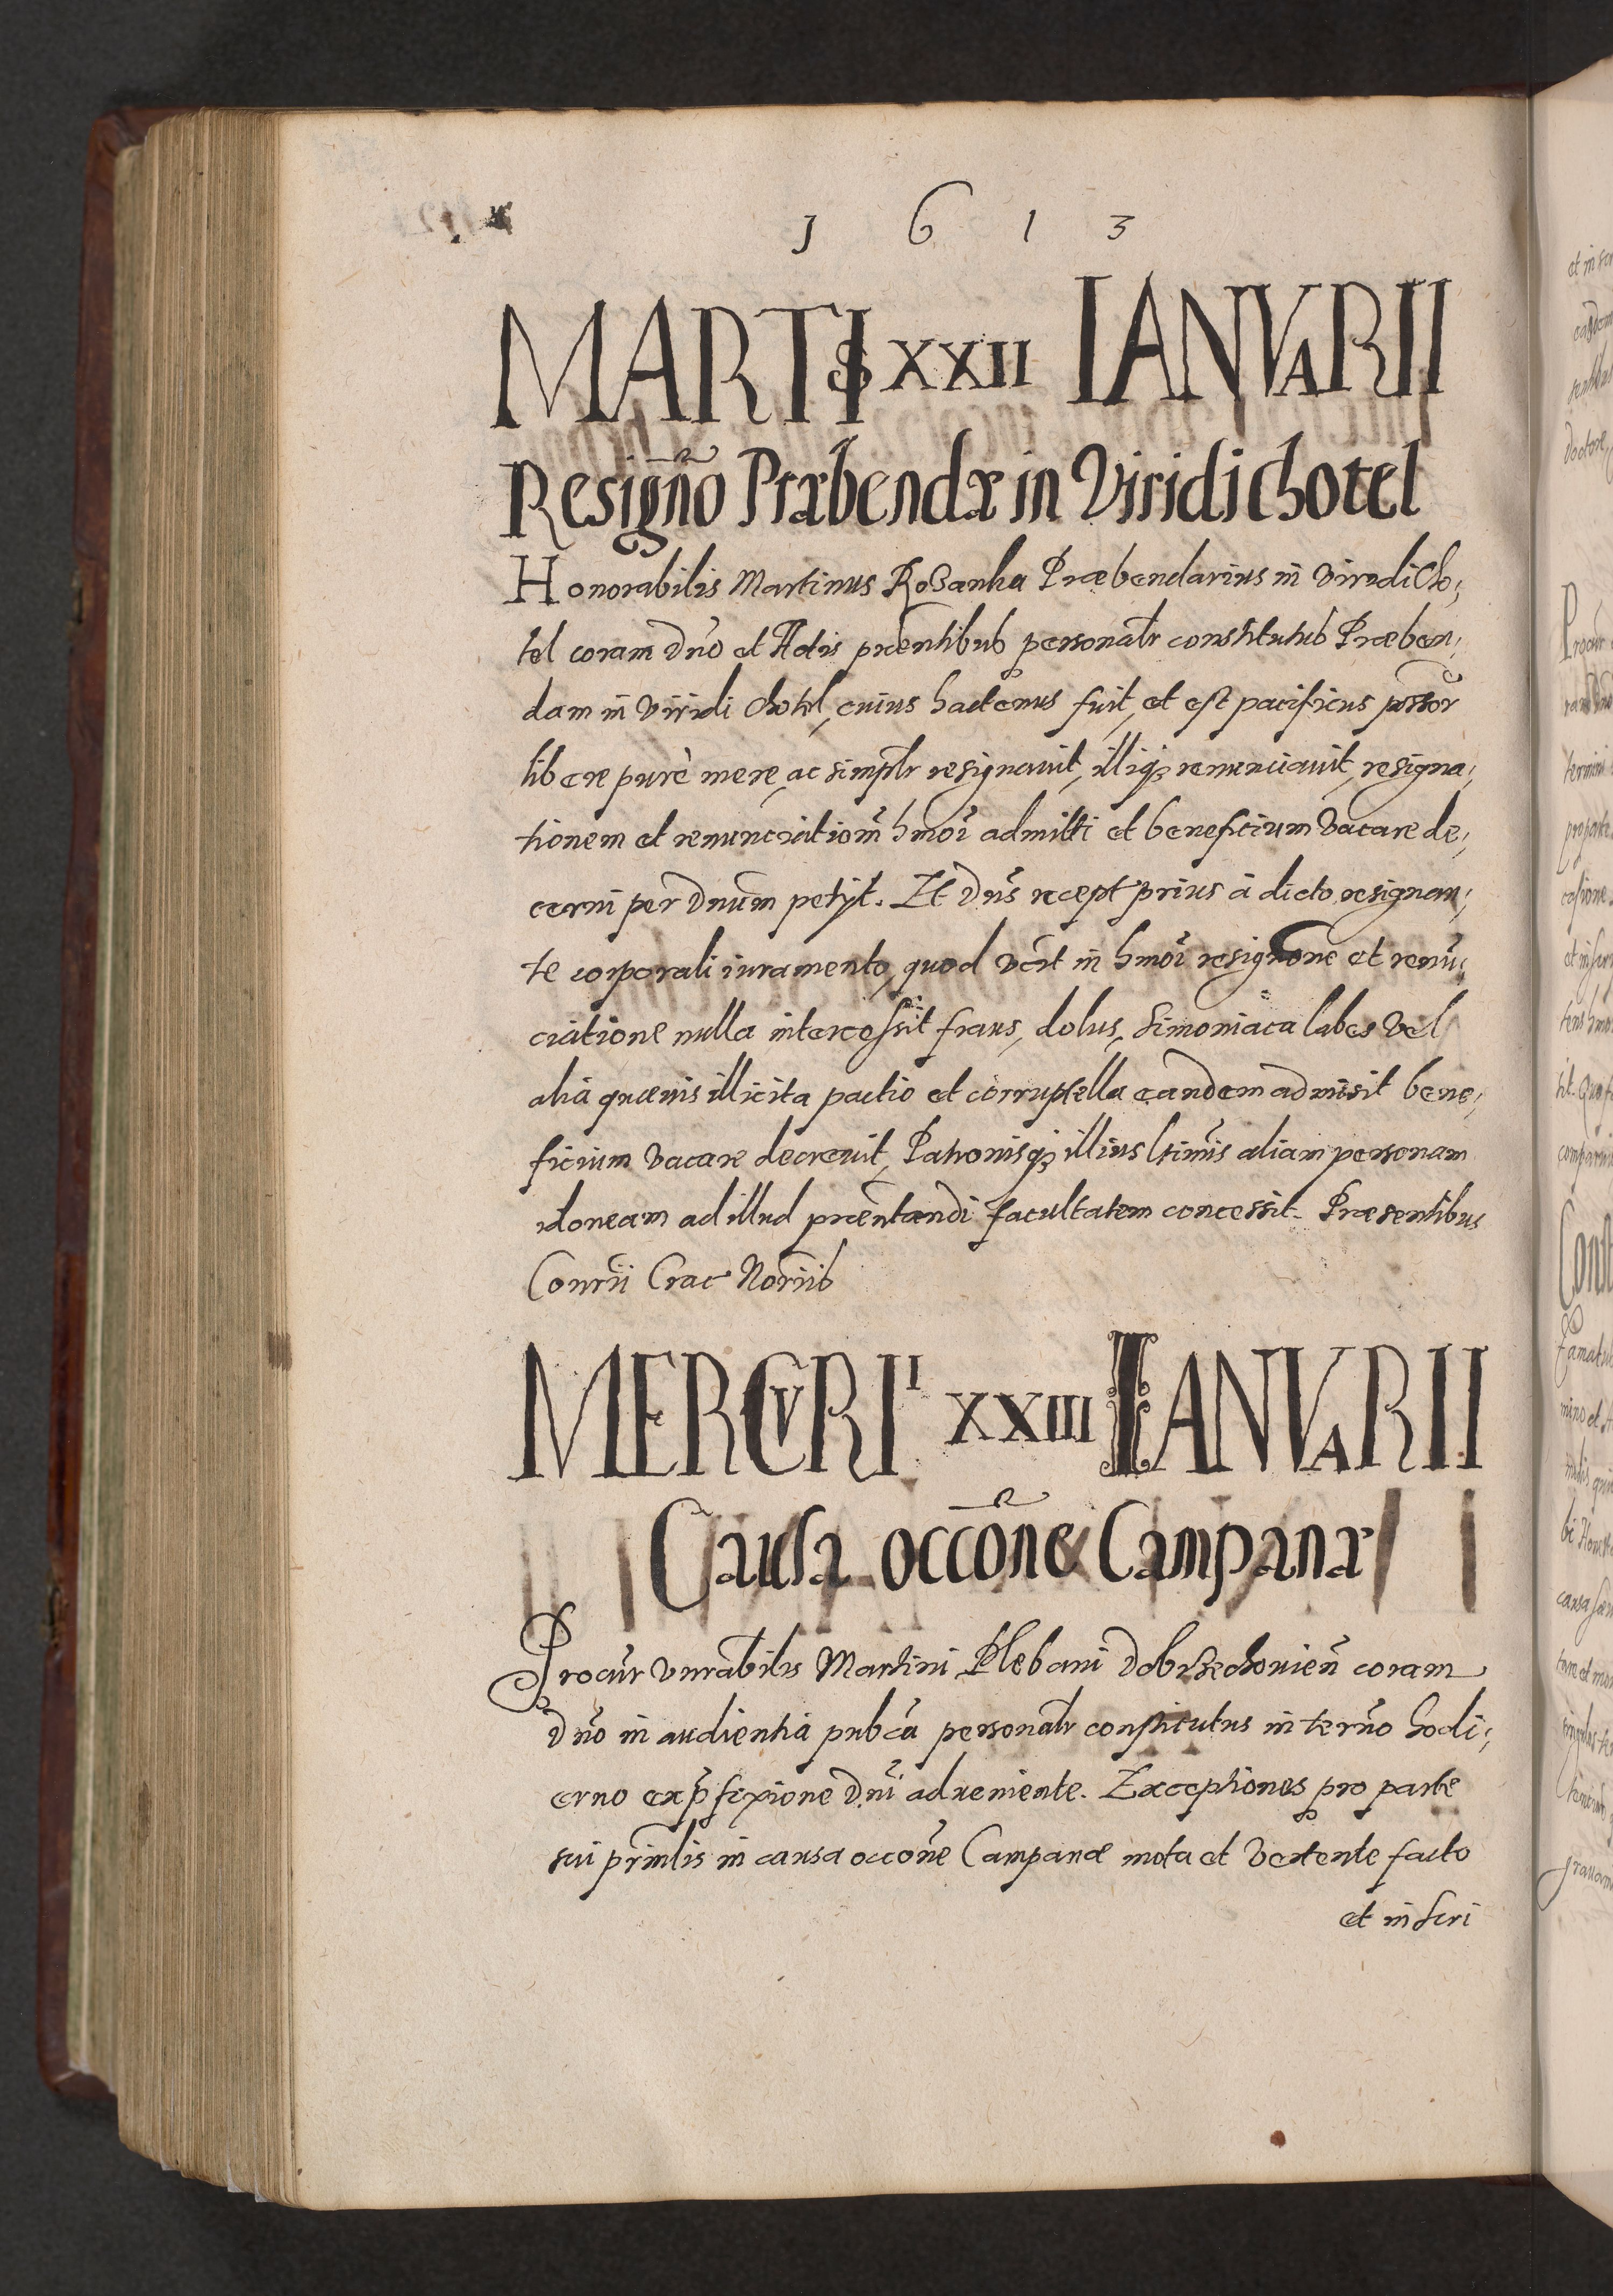 1 6 1 3
MARTIS XXII IANVARII
Resigño Præbendæ in Viridi chotel
Honorabilis Martinus Rosanka Præbendarius in viridi Cho,
tel coram dño et Actis pñtibus personalr constitutus Præben,
dam in viridi chotel, cuius hactenus fuit, et est pacificus possor
libere purè mere, ac simplr resignavit, illiqȝ renunciavit, resigna,
tionem et renunciationẽ hmõi admitti et beneficium vacare de,
cerni per Dnum petyt. Et Dñs recept prius à dicto resignan,
te corporali iuramento, quod vĩt in hmõi resignõne et renũ,
ciatione nulla intercessit fraus, dolus, Simoniaca labes vel
alia quævis illicita pactio et corruptella eandem admisit bene,
ficium vacare decrevit, Patronisqȝ illius ltimis aliam personam
idoneam ad illud præntandi facultatem concessit. Præsentibus
Conrii Crac Noriis
MERCVRII XXIII IANVARII
Causa occõne Campanæ
Procur vnrabilis Martini Plebani Dobrzechovien̄ coram
dño in audientia pubca personalr constitutus in termo hodi,
erno ex p̃fixione Dñi adveniente. Exceptiones pro parte
sui prinlis in causa occone Campanæ mota et vertente facto
et in scri